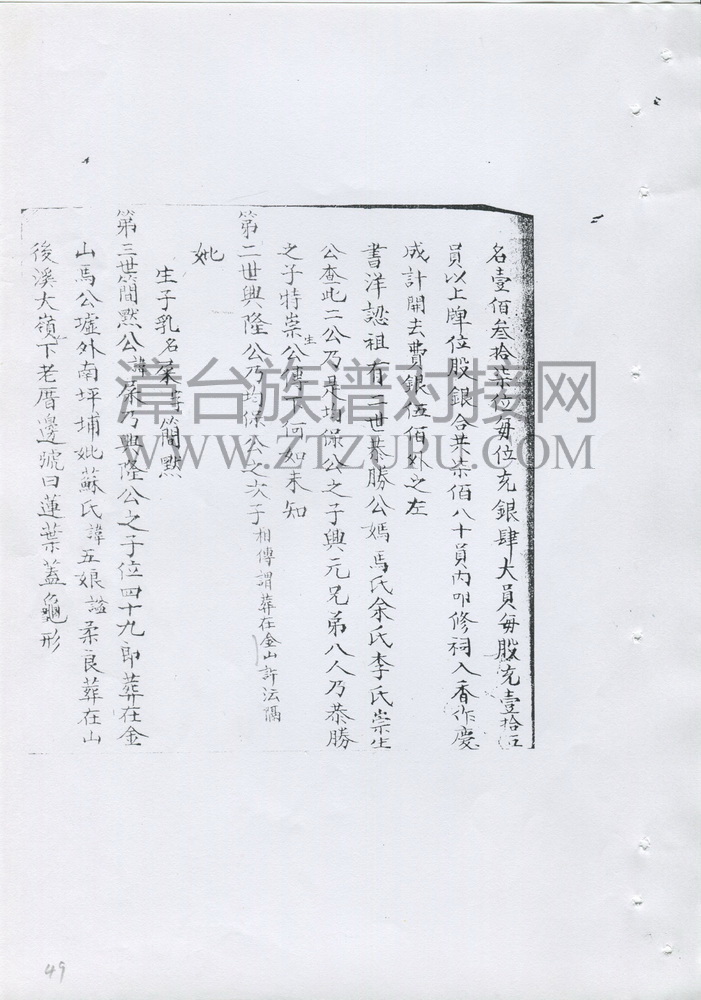 名壹佰叁拾柒位每位充銀肆大員每股充壹拾伍
員以上牌位股銀合共柒佰八十員內叩修祠入香作慶
成計開去費銀伍佰外之左
書洋認祖有二世恭勝公媽馬氏余氏李氏崇生
公查此二公乃是均保公之子興元兄弟八人乃恭勝
之子特崇生公傳下何如未知
第二世興隆公乃均保公之次子相傳謂葬在金山許法隔
妣
生子乳名 簡默
第三世簡默公諱 乃興隆公之子位四十九郎葬在金
山馬公墟外南坪埔妣蘇氏諱五娘謚柔良葬在山
後溪大嶺下老厝邊號曰蓮葉蓋龜形
漳台族谱对接网
WWW.ZTZUPU.COM
49